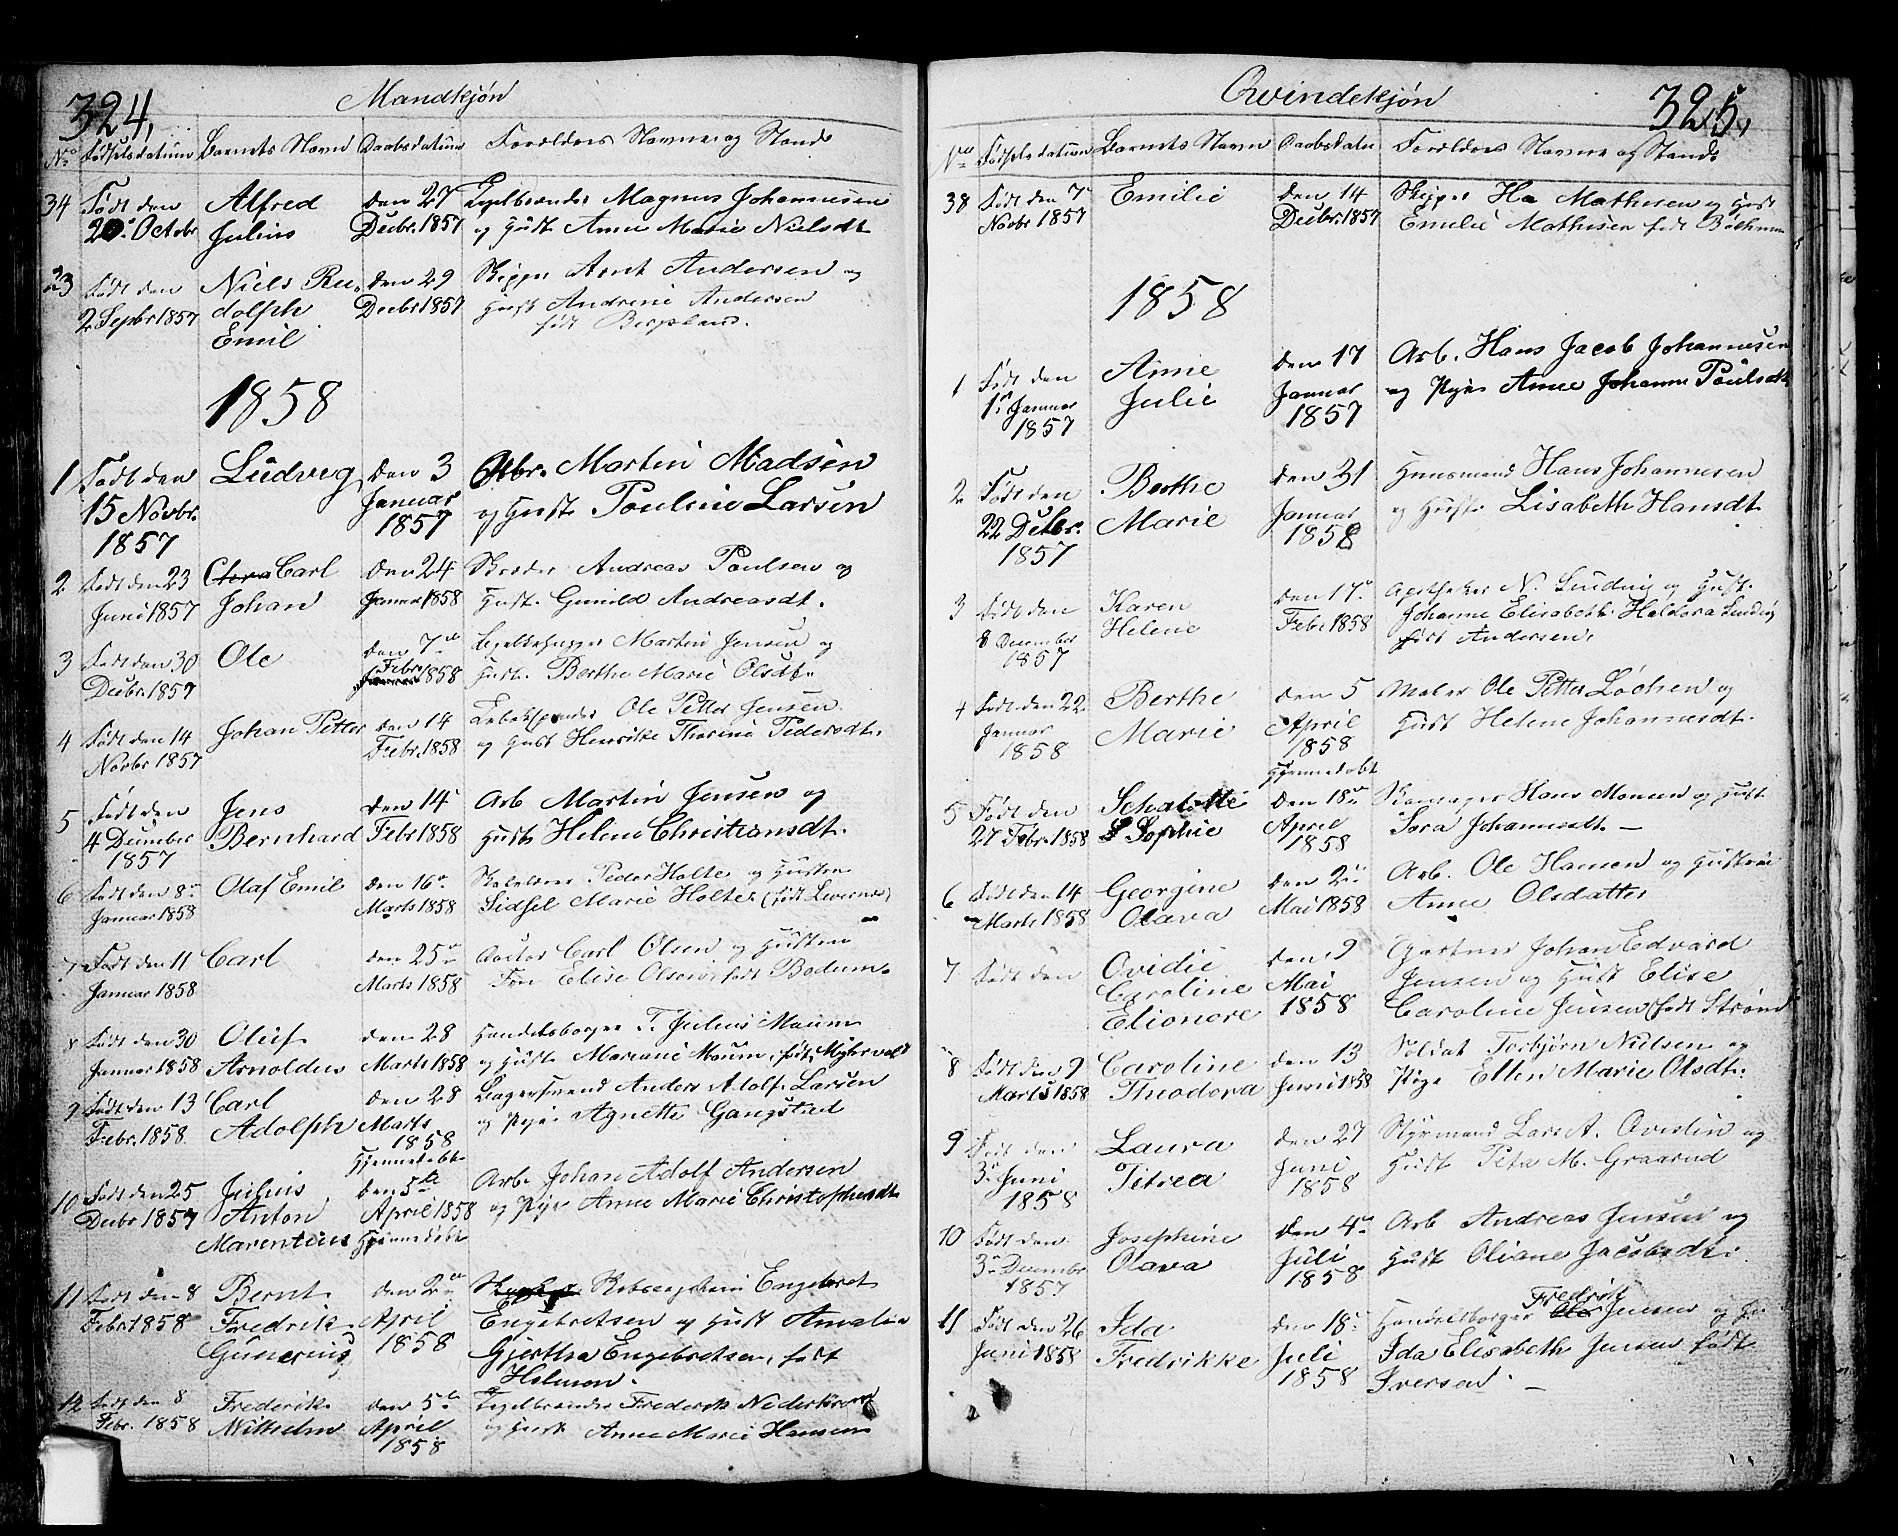 324.
Mandkjøn
No Fødselsdatum Barnets Navn Daabsdatum Forældres Navne og Stande
34 Født den Alfred den 27 Teglbrænder Magnus Johannesen
20 Octobr Julius Decbr. 1857 og Hust. Anne Marie Nielsdt
33 Født den Niels Ru- den 29 Skipper Arnt Andersen og
2 Septbr 1857 dolph Decbr 1857 Hust Andrine Andersen
Emil født
1858
1 Født den Ludvig den 3 Arb. Martin Madsen
15 Novbr. Januar og Hust. Pouline Larsen
1857 1857
2 Født den 23 Carl den 24 Andreas Poulsen og
Juni 1857 Johan Januar 1858 Hust. Gunild Andreasdt.
3 Født den 30 Ole den 7 Martin Jensen og
Decbr. 1857 Febr. 1858 Hust. Berthe Marie Olsdt.
4 Født den 14 Johan Petter den 14 Ole Petter Jensen
Novbr 1857 Febr. 1858 og Hust Henrike Thorine Pedersdt.
5 Født den Jens den 14 Arb Martin Jensen og
4 December Bernhard Febr 1858 Hust. Helene Christiansdt.
1857
6 Født den 8 Olaf Emil den 16 Peder Holte og Hustru
Januar 1858 Marts 1858 Sidsel Marie Holte (født
7 Født den 11 Carl den 25 Doctor Carl Olsen og Hustru
Januar 1858 Marts 1858 Elise født Bodum.
8 Født den 30 Oluf den 28 Handelsborger T. Julius Maum
Januar 1858 Arnoldus Marts 1858 og Hust. Mariane Maum, født
9 Født den 13 Carl den 28 Anders Adolf Larsen
Febr. 1858 Adolph Marts og Pige Agnette Gangstad
1858
Hjemmedøbt
10 Født den 25 Julius den 5te Arb. Johan Adolf Andersen
Decbr 1857 Anton April 1858 og Pige Anne Marie Christophersdt
Marentius Hjemmedøbt
11 Født den 8 Bernt den 2 Engebret
Febr. 1858 Fredrik April Engebretsen og Hust Amalia
Gunerius 1858 Gjertha Engebretsen, født
Holmen.
12 Født den 8 Frederik den 5te Teglbrænder Frederik
Febr. 1858 Wilhelm April og Hust Anne Marie Hansen
1858
325.
Qvindekjøn
No Fødselsdatum Barnets Navn Daabsdatum Forældres Navne og Stande
38 Født den 7 Emilie den 14 Skipper Ha Mathisen og Hust
Novbr 1857 Decbr. 1857 Emilie Mathisen født
1858
1 Født den Anne den 17 Arb. Hans Jacob Johannesen
1 Januar Julie Januar og Pige Anne Johanne Poulsdt
1857 1857
2 Født den Berthe den 31 Huusmand Hans Johannesen
22 Decbr. Marie Januar og Hust. Lisabeth Hansdt.
1857 1858
3 Født den Karen den 17 Apotheker N. Lindvig og Hust.
8 December Helene Febr 1858 Johanne Elisabeth Lindvig
1857 født Andersen
4 Født den 22 Berthe den 5 Maler Ole Petter Løchen og
Januar Marie April Hust Helene Johannesdt.
1858 1858
Hjemmedøbt
5 Født den Schalotte den 18 Hans Monsen og Hust
27 Febr. 1858 Sophie April Sara Johannesdt.
1858
6 Født den 14 Georgine den 2 Arb. Ole Hansen og Hustru
Marts 1858 Olava Mai 1858 Anne Olsdatter
7 Født den Ovidie den 9 Gartner Johan Edvard
Caroline Mai Jensen og Hust Elise
Elionore 1858 Caroline Jensen (født Strøm
8 Født den 9 Caroline den 13 Soldat Torbjørn Nielsen og
Marts 1858 Theodora Juni 1858 Pige Ellen Marie Olsdt.
9 Født den Laura den 27 Styrmand Lars A. Qvislin og
3 Juni Petrea Juni Hust Peta M. Graarud
1858 1858
10 Født den Josephine den 4 Arb Andreas Jensen og
3 Decembr Olava Juli Hust Oliane Jacobsdt.
1857 1858
11 Født den 26 Ida den 18 Handelsborger Fredrik Jensen og Hu
Juni 1858 Fredrikke Juli Ida Elisabeth Jensen født
1858 Iversen.